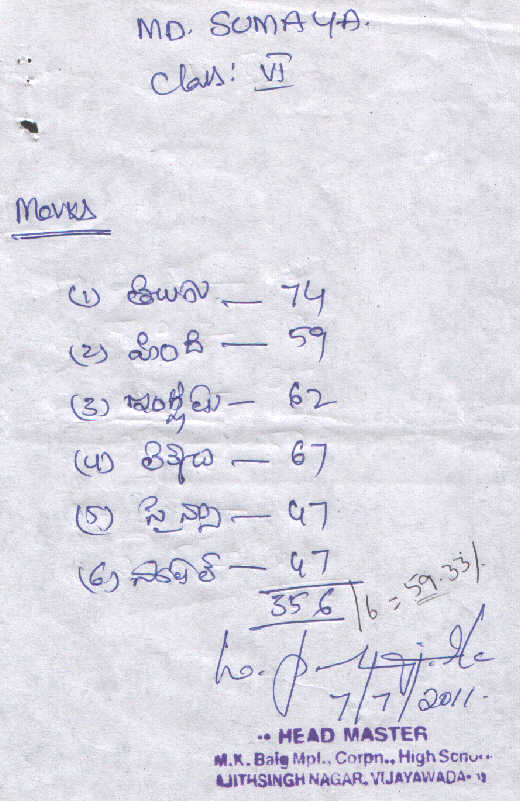 MD. SUMAYA.
Class: VI
Marks
(1) తెలుగు — 74
(2) హింది — 59
(3) ఇంగ్లీషు — 62
(4) లెక్కలు — 67
(5) సైన్సు — 47
(6) సోషల్ — 47
356 /6 = 59.33%
7/7/2011.
HEAD MASTER
M.K. Baig Mpl., Corpn., High
AJITHSINGH NAGAR, VIJAYAWADA-